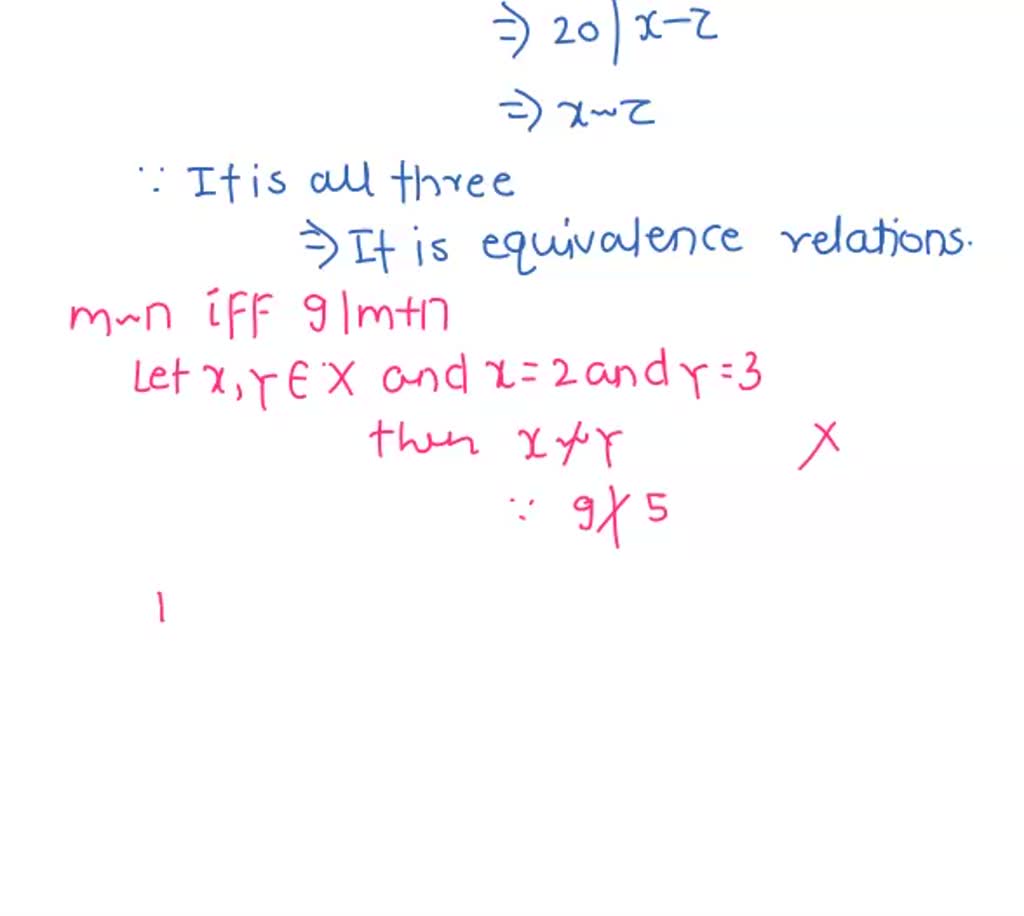 ⇒ 20 | x-z
⇒ x~z
∵ It is all three
⇒ It is equivalence relations.
m~n iFF 9|m+n
Let x, y ∈ X and x = 2 and y = 3
then x≁y X
∵ 9∤5
|